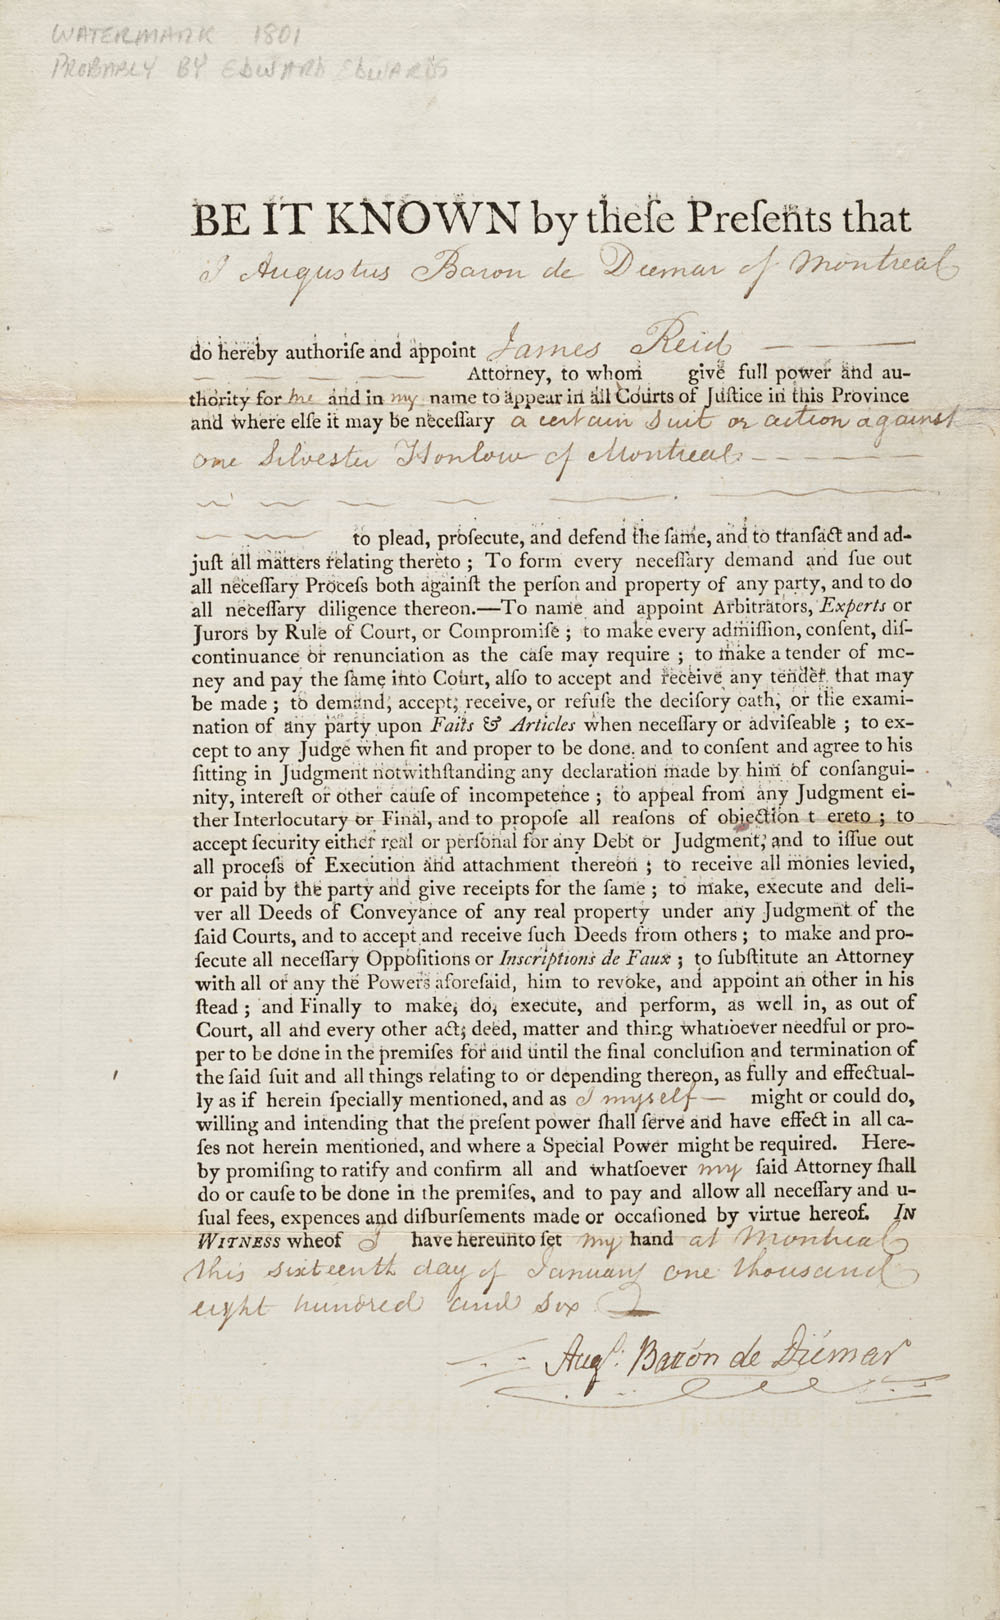 WATERMARK 1801
PROBABLY BY EDWARD EDWARDS
BE IT KNOWN by theſe Preſents that
I Augustus Baron de Diemar of Montreal
do hereby authoriſe and appoint James Reid
Attorney, to whom give full power and au-
thority for me and in my name to appear in all Courts of Juſtice in this Province
and where elſe it may be neceſſary a certain Suit or action against
one Silvester Honlow of Montreal
to plead, proſecute, and defend the ſame, and to tranſact and ad-
juſt all matters relating thereto ; To form every neceſſary demand and ſue out
all neceſſary Proceſs both againſt the perſon and property of any party, and to do
all neceſſary diligence thereon.—To name and appoint Arbitrators, Experts or
Jurors by Rule of Court, or Compromiſe ; to make every admiſſion, conſent, diſ-
continuance or renunciation as the caſe may require ; to make a tender of mo-
ney and pay the ſame into Court, alſo to accept and receive any tender that may
be made ; to demand, accept, receive, or refuſe the deciſory oath, or the exami-
nation of any party upon Faits & Articles when neceſſary or adviſeable ; to ex-
cept to any Judge when fit and proper to be done. and to conſent and agree to his
ſitting in Judgment notwithſtanding any declaration made by him of conſangui-
nity, intereſt or other cauſe of incompetence ; to appeal from any Judgment ei-
ther Interlocutary or Final, and to propoſe all reaſons of objection t ereto ; to
accept security either real or perſonal for any Debt or Judgment, and to iſſue out
all proceſs of Execution and attachment thereon ; to receive all monies levied,
or paid by the party and give receipts for the ſame ; to make, execute and deli-
ver all Deeds of Conveyance of any real property under any Judgment of the
ſaid Courts, and to accept and receive ſuch Deeds from others ; to make and pro-
ſecute all neceſſary Oppoſitions or Inscriptions de Faux ; to ſubſtitute an Attorney
with all or any the Powers aforeſaid, him to revoke, and appoint an other in his
ſtead ; and Finally to make, do, execute, and perform, as well in, as out of
Court, all and every other act, deed, matter and thing whatſoever needful or pro-
per to be done in the premiſes for and until the final concluſion and termination of
the ſaid ſuit and all things relating to or depending thereon, as fully and effectual-
ly as if herein ſpecially mentioned, and as I myself might or could do,
willing and intending that the preſent power ſhall ſerve and have effect in all ca-
ſes not herein mentioned, and where a Special Power might be required. Here-
by promiſing to ratify and confirm all and whatſoever my ſaid Attorney ſhall
do or cauſe to be done in the premiſes, and to pay and allow all neceſſary and u-
ſual fees, expences and diſburſements made or occaſioned by virtue hereof. IN
WITNESS wheof I have hereunto ſet my hand at Montreal
this sixteenth day of January one thousand
eight hundred and six
Augs. Barón de Diémar